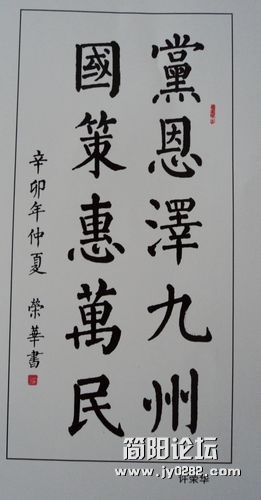 黨恩澤九州
國策惠萬民
辛卯年仲夏 榮華書
许荣华
简阳论坛
www.jy0282.com